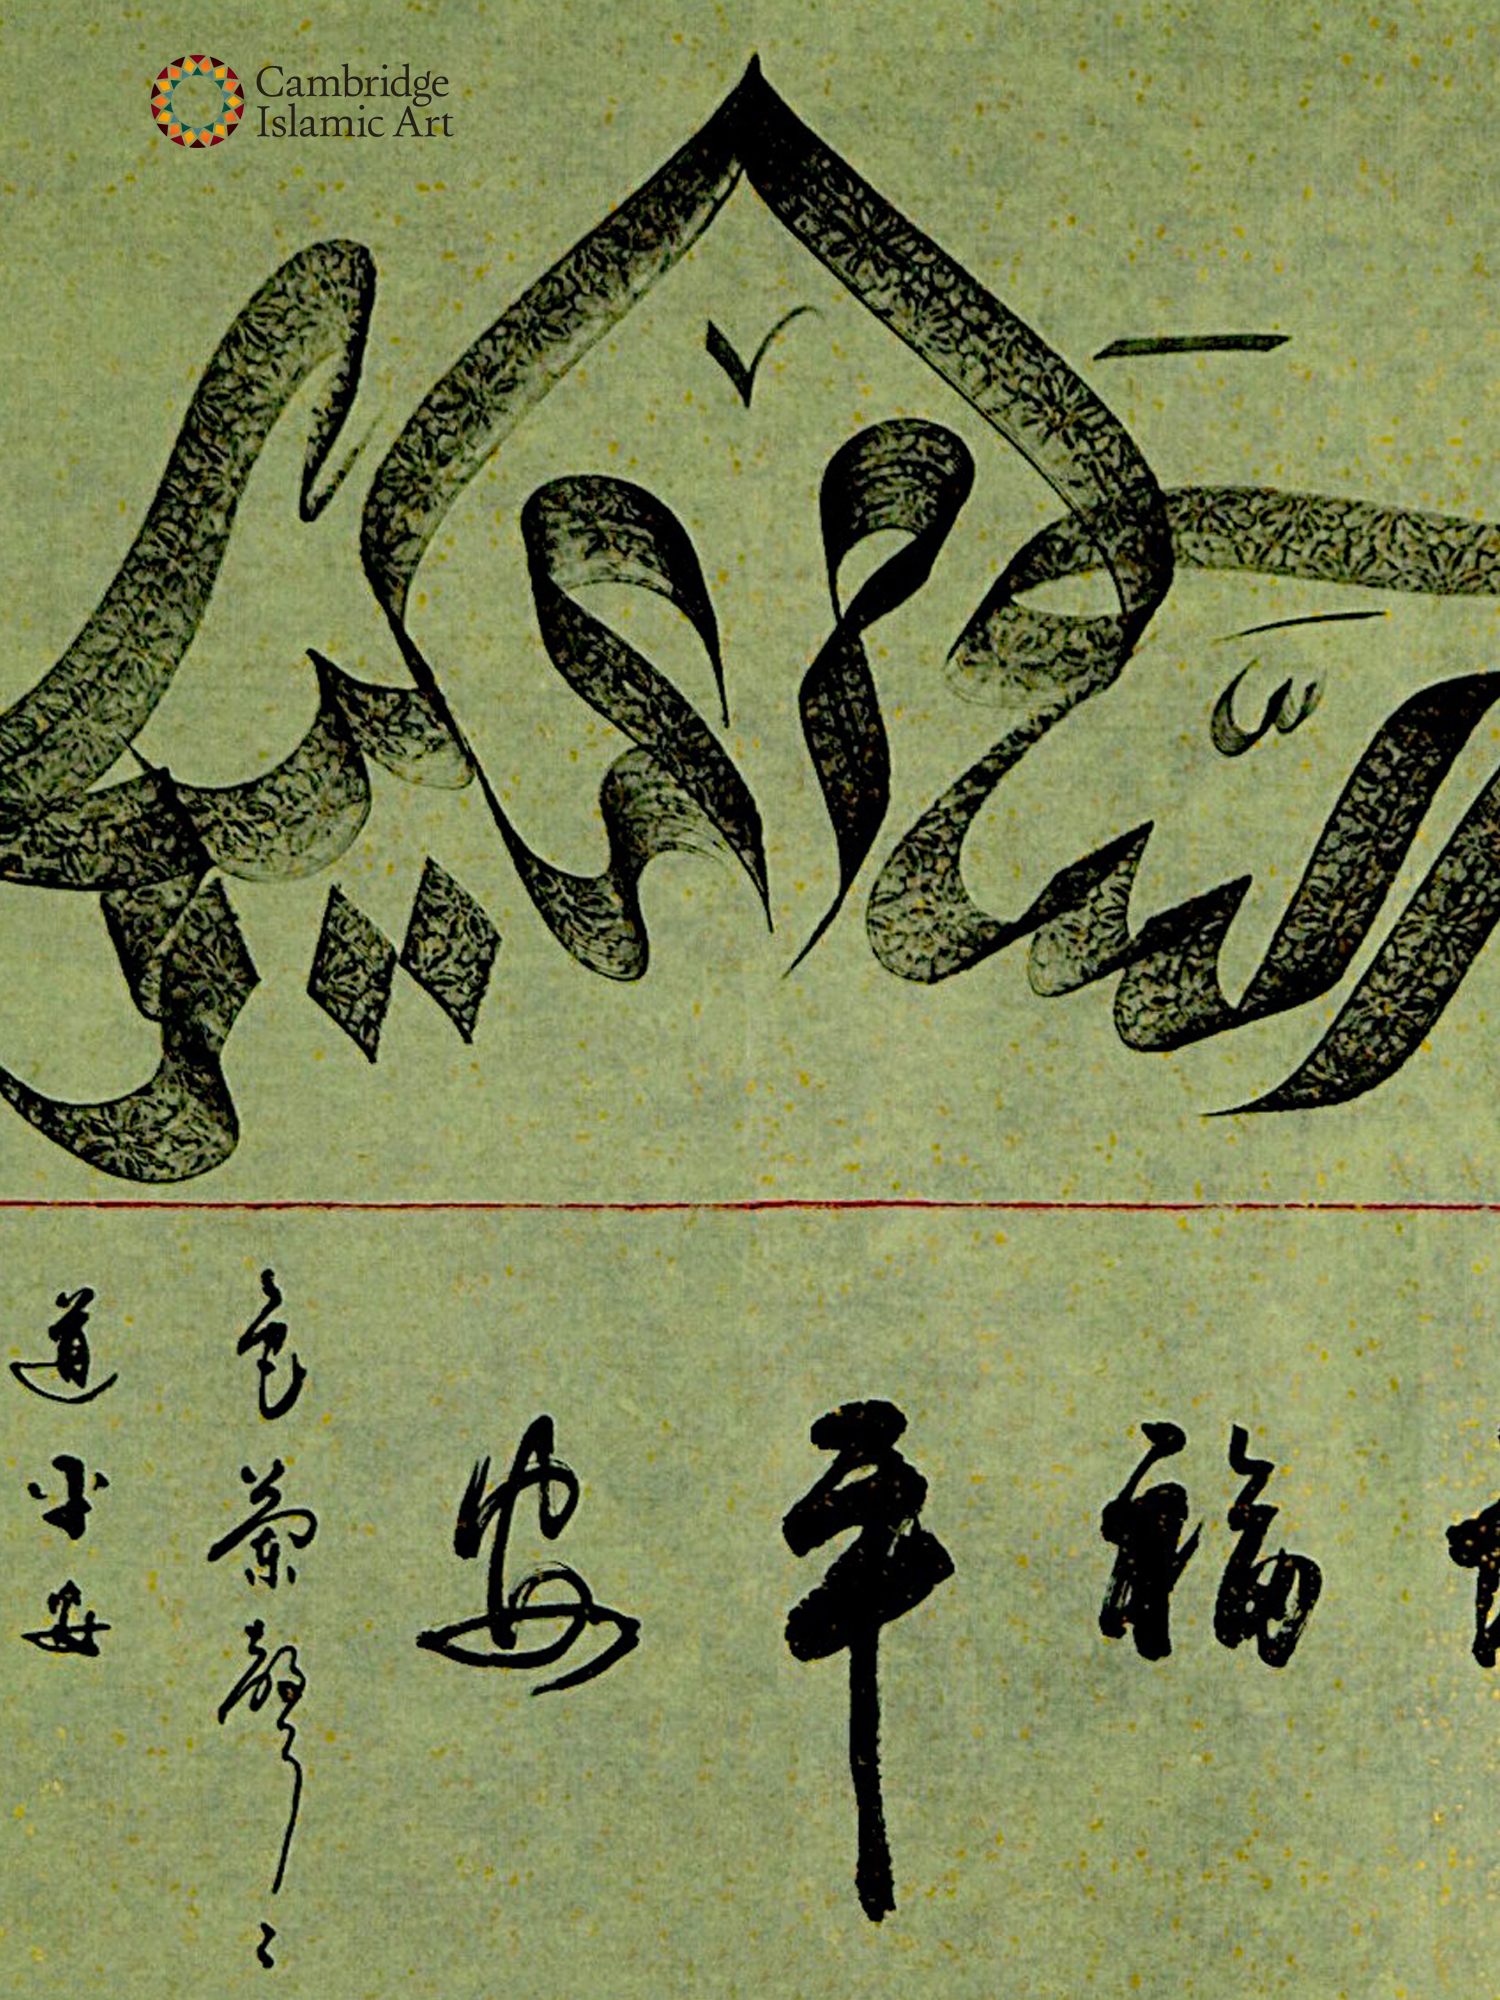 Cambridge
Islamic Art
السلام عليكم
福平安
色蘭聲〻
道平安